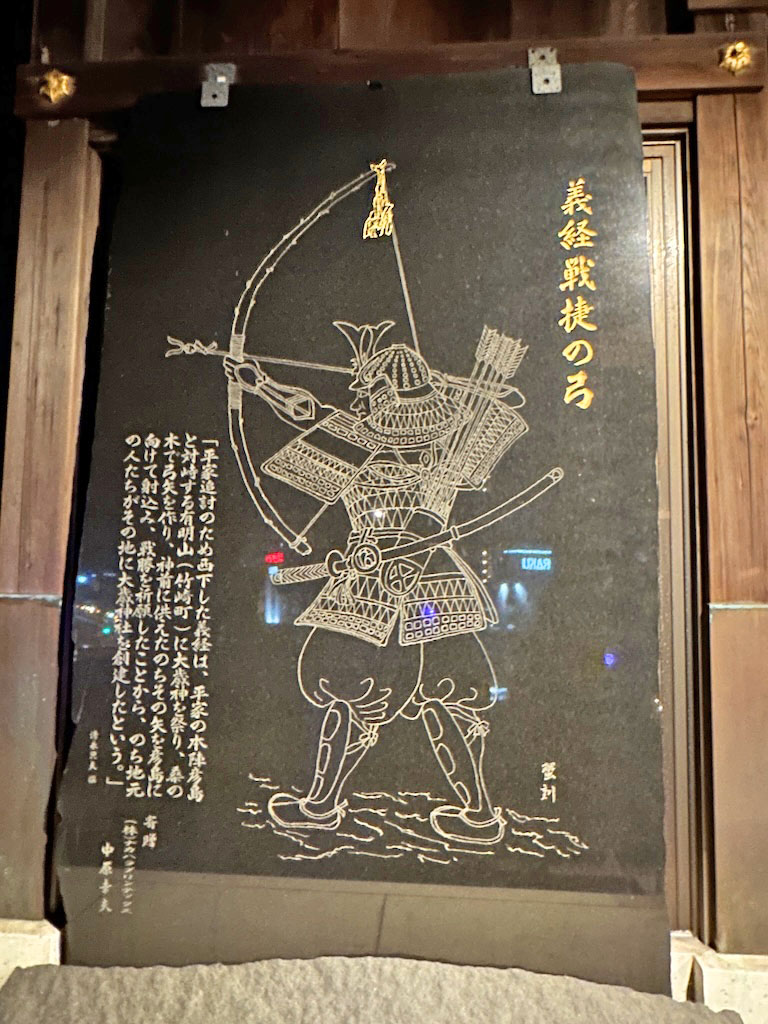 義経戦捷の弓
「平家追討のため西下した義経は、平家の本陣彦島
と対峙する有明山（竹崎町）に大歳神を祭り、桑の
木で弓矢を作り、神前に供えたのちその矢を彦島に
向けて射込み、戦勝を祈願したことから、のち地元
の人たちがその地に大歳神社を創建したという。」
寄贈
中原幸夫